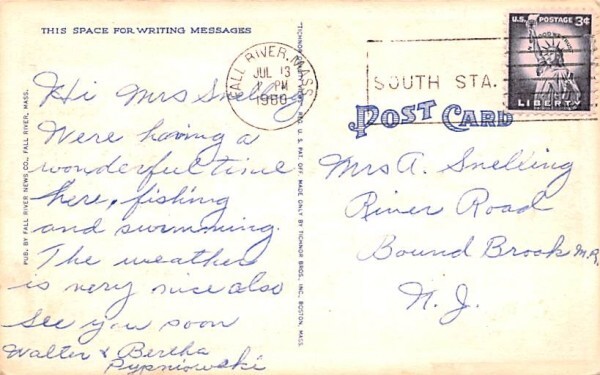 THIS SPACE FOR WRITING MESSAGES
Hi Mrs Snelling
Were having a
wonderful time
here, fishing
and swimming.
The weather
is very nice also
See you soon
Walter & Bertha
Pypniowski
PUB. BY FALL RIVER NEWS CO., FALL RIVER, MASS.
MADE ONLY BY TICHNOR BROS., INC., BOSTON, MASS.
FALL RIVER, MASS.
JUL 13
PM
1960
SOUTH STA.
U.S. POSTAGE 3¢
LIBERTY
POST CARD
Mrs A. Snelling
River Road
Bound Brook
N. J.